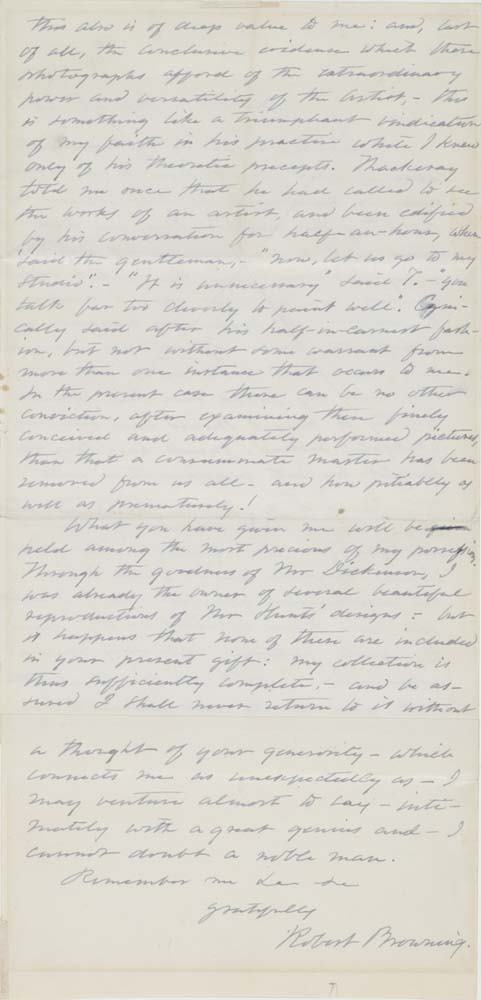 this also is of deep value to me: and, last
of all, the conclusive evidence which these
photographs afford of the extraordinary
power and versatility of the artist,- this
is something like a triumphant vindication
of my faith in his practice while I knew
only of his theoretic precepts. Thackeray
told me once that he had called to see
the works of an artist, and been edified
by his conversation for half-an-hour, when
said the gentleman,- "now, let us go to my
Studio".- "It is unnecessary" said T.- "you
talk far too cleverly to paint well". Cyni-
cally said after his half-in-earnest fash-
ion, but not without some warrant from
more than one instance that occurs to me.
In the present case there can be no other
conviction, after examining these finely
conceived and adequately performed pictures,
than that a consummate master has been
removed from us all- and how pitiably as
well as prematurely!
What you have given me will be
held among the most precious of my possessions.
Through the goodness of Mr Dickinson, I
was already the owner of several beautiful
reproductions of Mr Hunts' designs: but
it happens that none of these are included
in your present gift: my collection is
thus sufficiently complete,- and be as-
sured I shall never return to it without
a thought of your generosity- which
connects me as unexpectedly as- I
may venture almost to say- inti-
mately with a great genius and- I
cannot doubt a noble man.
Remember me &c &c
gratefully
Robert Browning.